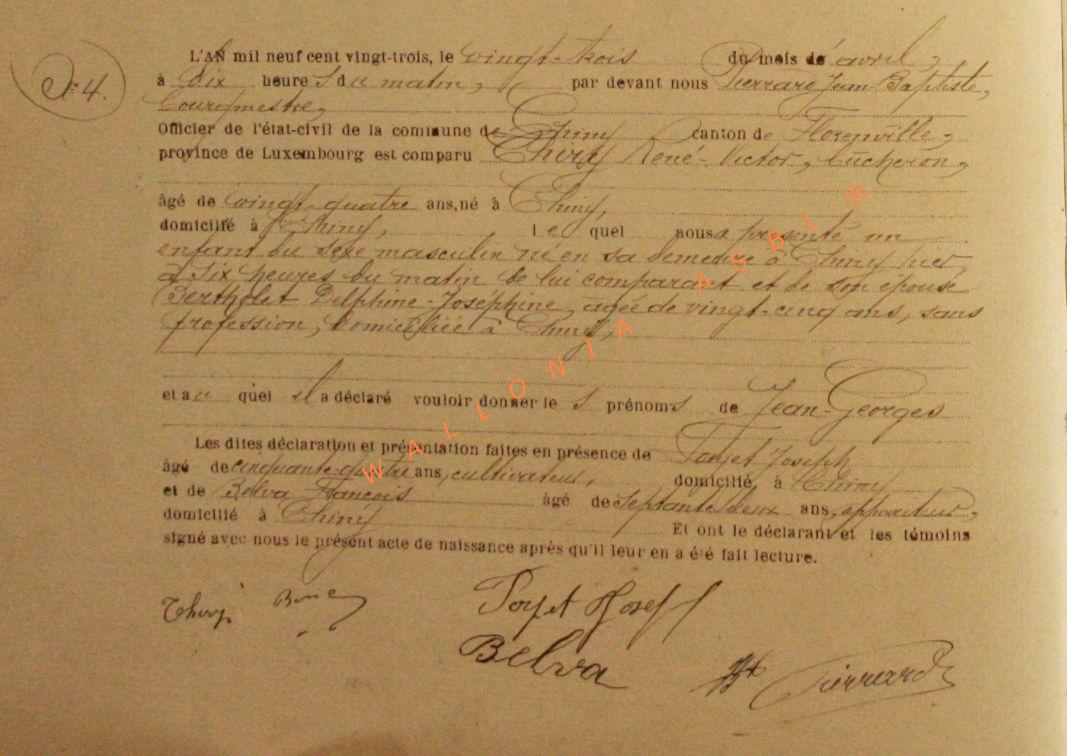 N° 4.
L'AN mil neuf cent vingt-trois, le vingt-trois du mois de avril,
à dix heure s du matin, par devant nous Pierrard Jean-Baptiste,
Bourgmestre,
Officier de l'état-civil de la commune de Chiny canton de Florenville,
province de Luxembourg est comparu Thiry René-Victor, bucheron,
âgé de vingt-quatre ans, né à Chiny,
domicilié à Chiny, le quel nous a présenté un
enfant du sexe masculin né en sa demeure à Chiny hier,
à six heures du matin de lui comparant et de son épouse
Bertholet Delphine-Joséphine, agée de vingt-cinq ans, sans
profession, domiciliée à Chiny,
et au quel il a déclaré vouloir donner le s prénom s de Jean-Georges
Les dites déclaration et présentation faites en présence de Joseph
âgé de cinquante-quatre ans, cultivateur, domicilié, à Chiny
et de Belva François âgé de septante deux ans, appariteur,
domicilié à Chiny Et ont le déclarant et les témoins
signé avec nous le présent acte de naissance après qu'il leur en a été fait lecture.
Thiry René Josef
Belva Pierrard
WALLONIA ASBL ®